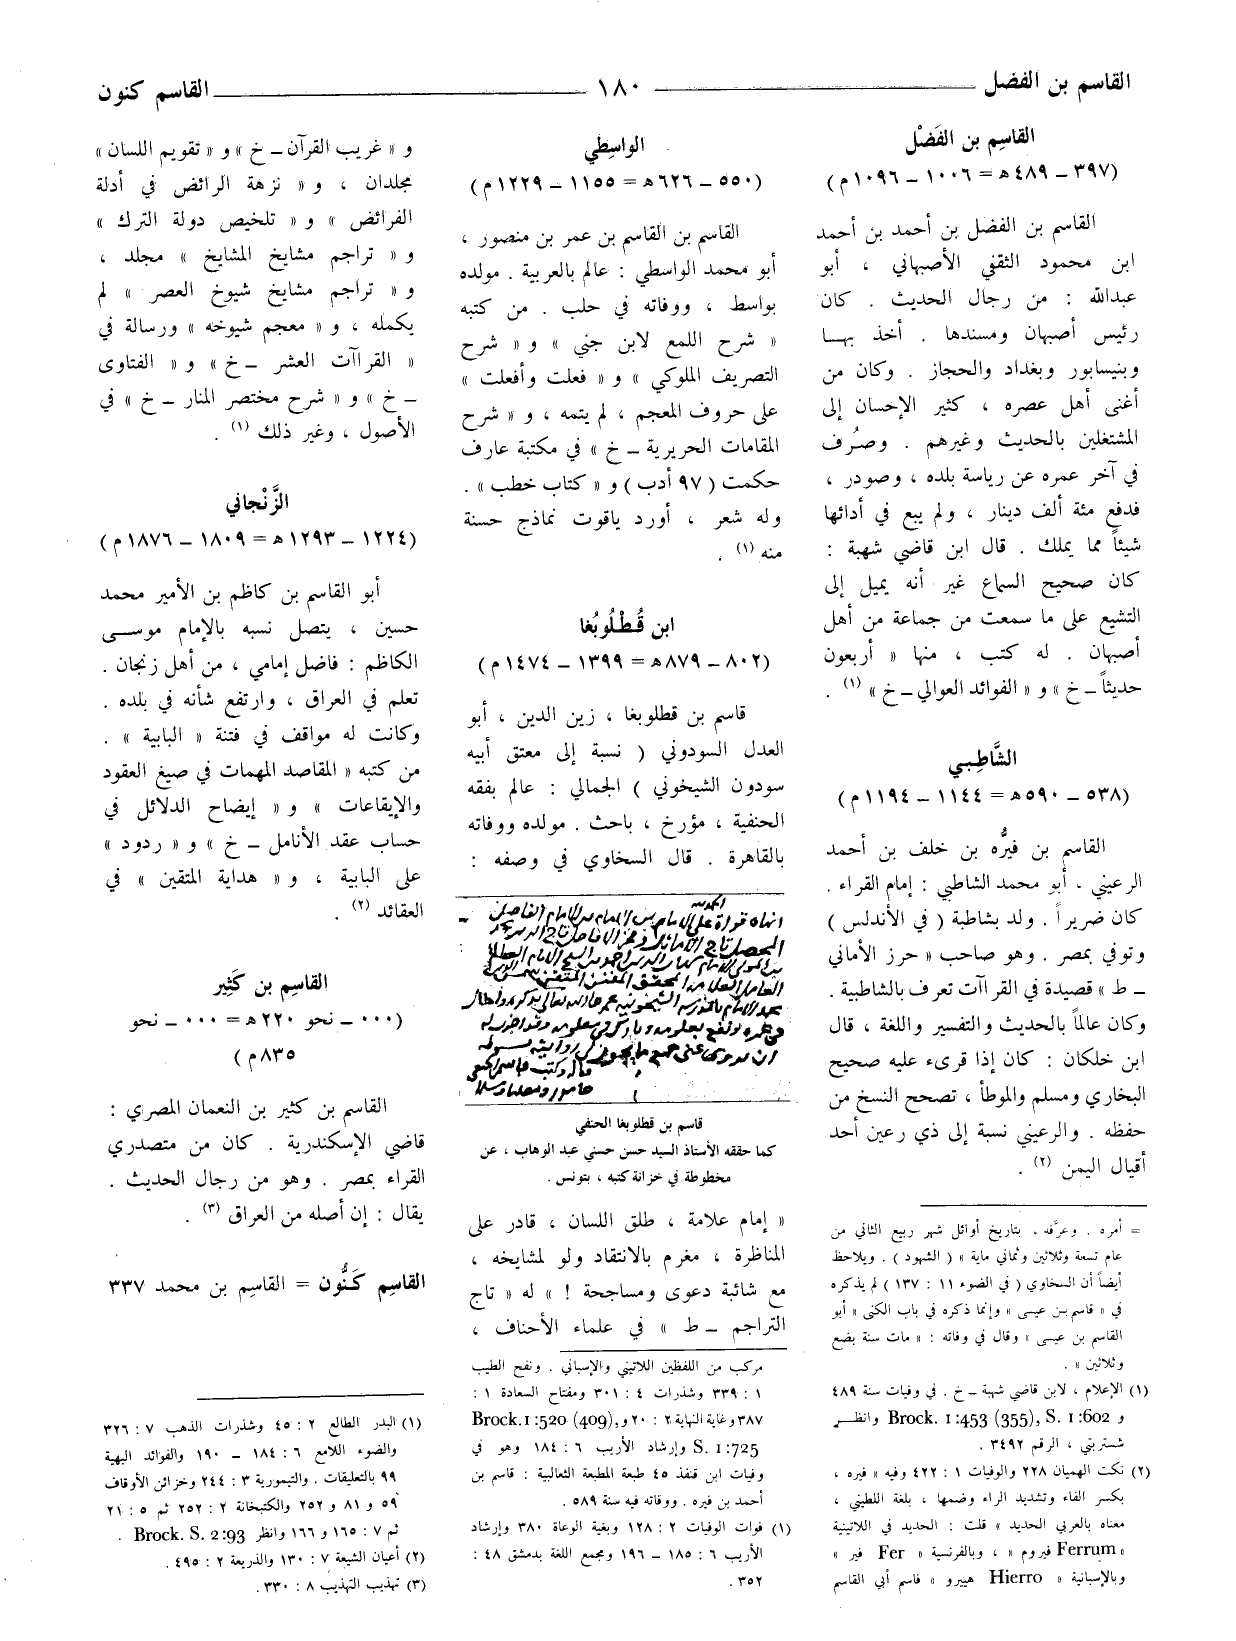 القاسم بن الفضل ١٨٠ القاسم كنون
القاسِم بن الفَضْل
(٣٩٧ ــ ٤٨٩ ه = ١٠٠٦ ــ ١٠٩٦ م)
القاسم بن الفضل بن أحمد بن أحمد
ابن محمود الثقفي الأصبهاني ، أبو
عبدالله : من رجال الحديث . كان
رئيس أصبهان ومسندها . أخذ بهـا
وبنيسابور وبغداد والحجاز . وكان من
أغنى أهل عصره ، كثير الإحسان إلى
المشتغلين بالحديث وغيرهم . وصُرف
في آخر عمره عن رياسة بلده ، وصودر ،
فدفع مئة ألف دينار ، ولم يبع في أدائها
شيئاً مما يملك . قال ابن قاضي شهبة :
كان صحيح السماع غير أنه يميل إلى
التشيع على ما سمعت من جماعة من أهل
أصبهان . له كتب ، منها « أربعون
حديثاً ــ خ » و « الفوائد العوالي ــ خ » (١) .
الشَّاطِبي
(٥٣٨ ــ ٥٩٠ ه = ١١٤٤ ــ ١١٩٤ م)
القاسم بن فيرُّه بن خلف بن أحمد
الرعيني ، أبو محمد الشاطبي : إمام القراء .
كان ضريراً . ولد بشاطبة ( في الأندلس )
وتوفي بمصر . وهو صاحب « حرز الأماني
ــ ط » قصيدة في القراآت تعرف بالشاطبية .
وكان عالماً بالحديث والتفسير واللغة ، قال
ابن خلكان : كان إذا قرىء عليه صحيح
البخاري ومسلم والموطأ ، تصحح النسخ من
حفظه . والرعيني نسبة إلى ذي رعين أحد
أقيال اليمن (٢) .
= أمره . وعرَّفه . بتاريخ أوائل شهر ربيع الثاني من
عام تسعة وثلاثين وثماني ماية » ( الشهود ) . ويلاحظ
أيضاً أن السخاوي ( في الضوء ١١ : ١٣٧ ) لم يذكره
في « قاسم بن عيسى » وإنما ذكره في باب الكنى « أبو
القاسم بن عيسى » وقال في وفاته : « مات سنة بضع
وثلاثين » .
(١) الإعلام ، لابن قاضي شهبة ــ خ . في وفيات سنة ٤٨٩
و Brock. 1:453 (355), S. 1:602 وانظـر
شستربتي ، الرقم ٣٤٩٢ .
(٢) نكت الهميان ٢٢٨ والوفيات ١ : ٤٢٢ وفيه « فيره ،
بكسر الفاء وتشديد الراء وضمها ، بلغة اللطيني ،
معناه بالعربي الحديد » قلت : الحديد في اللاتينية
« Ferrum فيروم » ، وبالفرنسية « Fer فير »
وبالإسبانية « Hierro هييرو » قاسم أبي القاسم
الواسِطي
(٥٥٠ ــ ٦٢٦ ه = ١١٥٥ ــ ١٢٢٩ م)
القاسم بن القاسم بن عمر بن منصور ،
أبو محمد الواسطي : عالم بالعربية . مولده
بواسط ، ووفاته في حلب . من كتبه
« شرح اللمع لابن جني » و « شرح
التصريف الملوكي » و « فعلت وأفعلت »
على حروف المعجم ، لم يتمه ، و « شرح
المقامات الحريرية ــ خ » في مكتبة عارف
حكمت ( ٩٧ أدب ) و « كتاب خطب » .
وله شعر ، أورد ياقوت نماذج حسنة
منه (١) .
ابن قُطْلُوبُغا
(٨٠٢ ــ ٨٧٩ ه = ١٣٩٩ ــ ١٤٧٤ م)
قاسم بن قطلوبغا ، زين الدين ، أبو
العدل السودوني ( نسبة إلى معتق أبيه
سودون الشيخوني ) الجمالي : عالم بفقه
الحنفية ، مؤرخ ، باحث . مولده ووفاته
بالقاهرة . قال السخاوي في وصفه :
قاسم بن قطلوبغا الحنفي
كما حققه الأستاذ السيد حسن حسني عبد الوهاب ، عن
مخطوطة في خزانة كتبه ، بتونس .
« إمام علامة ، طلق اللسان ، قادر على
المناظرة ، مغرم بالانتقاد ولو لمشايخه ،
مع شائبة دعوى ومساجحة ! » له « تاج
التراجم ــ ط » في علماء الأحناف ،
مركب من اللفظين اللاتيني والإسباني . ونفح الطيب
١ : ٣٣٩ وشذرات ٤ : ٣٠١ ومفتاح السعادة ١ :
٣٨٧ وغاية النهاية ٢ : ٢٠ و Brock. 1:520 (409),
S. 1:725 وإرشاد الأريب ٦ : ١٨٤ وهو في
وفيات ابن قنفذ ٤٥ طبعة المطبعة الثعالبية : قاسم بن
أحمد بن فيره . ووفاته فيه سنة ٥٨٩ .
(١) فوات الوفيات ٢ : ١٢٨ وبغية الوعاة ٣٨٠ وإرشاد
الأريب ٦ : ١٨٥ ــ ١٩٦ ومجمع اللغة بدمشق ٤٨ :
٣٥٢ .
و « غريب القرآن ــ خ » و « تقويم اللسان »
مجلدان ، و « نزهة الرائض في أدلة
الفرائض » و « تلخيص دولة الترك »
و « تراجم مشايخ المشايخ » مجلد ،
و « تراجم مشايخ شيوخ العصر » لم
يكمله ، و « معجم شيوخه » ورسالة في
« القراآت العشر ــ خ » و « الفتاوى
ــ خ » و « شرح مختصر المنار ــ خ » في
الأصول ، وغير ذلك (١) .
الزَّنْجاني
(١٢٢٤ ــ ١٢٩٣ ه = ١٨٠٩ ــ ١٨٧٦ م)
أبو القاسم بن كاظم بن الأمير محمد
حسين ، يتصل نسبه بالإمام موسـى
الكاظم : فاضل إمامي ، من أهل زنجان .
تعلم في العراق ، وارتفع شأنه في بلده .
وكانت له مواقف في فتنة « البابية » .
من كتبه « المقاصد المهمات في صيغ العقود
والإيقاعات » و « إيضاح الدلائل في
حساب عقد الأنامل ــ خ » و « ردود »
على البابية ، و « هداية المتقين » في
العقائد (٢) .
القاسِم بن كَثِير
(٠٠٠ ــ نحو ٢٢٠ ه = ٠٠٠ ــ نحو
٨٣٥ م)
القاسم بن كثير بن النعمان المصري :
قاضي الإسكندرية . كان من متصدري
القراء بمصر . وهو من رجال الحديث .
يقال : إن أصله من العراق (٣) .
القاسِم كَنُّون = القاسِم بن محمد ٣٣٧
(١) البدر الطالع ٢ : ٤٥ وشذرات الذهب ٧ : ٣٢٦
والضوء اللامع ٦ : ١٨٤ ــ ١٩٠ والفوائد البهية
٩٩ بالتعليقات . والتيمورية ٣ : ٢٤٤ وخزائن الأوقاف
٥٩ و ٨١ و ٢٥٢ والكتبخانة ٢ : ٢٥٢ ثم ٥ : ٢١
ثم ٧ : ١٦٥ و ١٦٦ وانظر Brock. S. 2:93 .
(٢) أعيان الشيعة ٧ : ١٣٠ والذريعة ٢ : ٤٩٥ .
(٣) تهذيب التهذيب ٨ : ٣٣٠ .